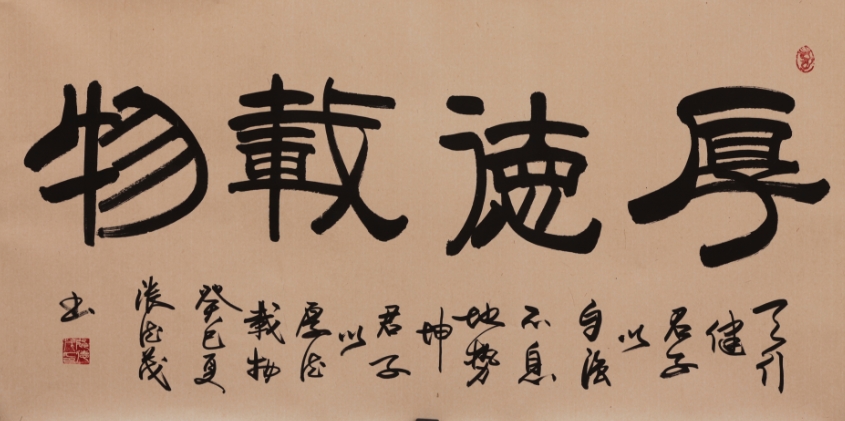 厚徳載物
天行
健
君子
以
自强
不息
地势
坤
君子
以
厚德
载物
癸巳夏
张德茂
书